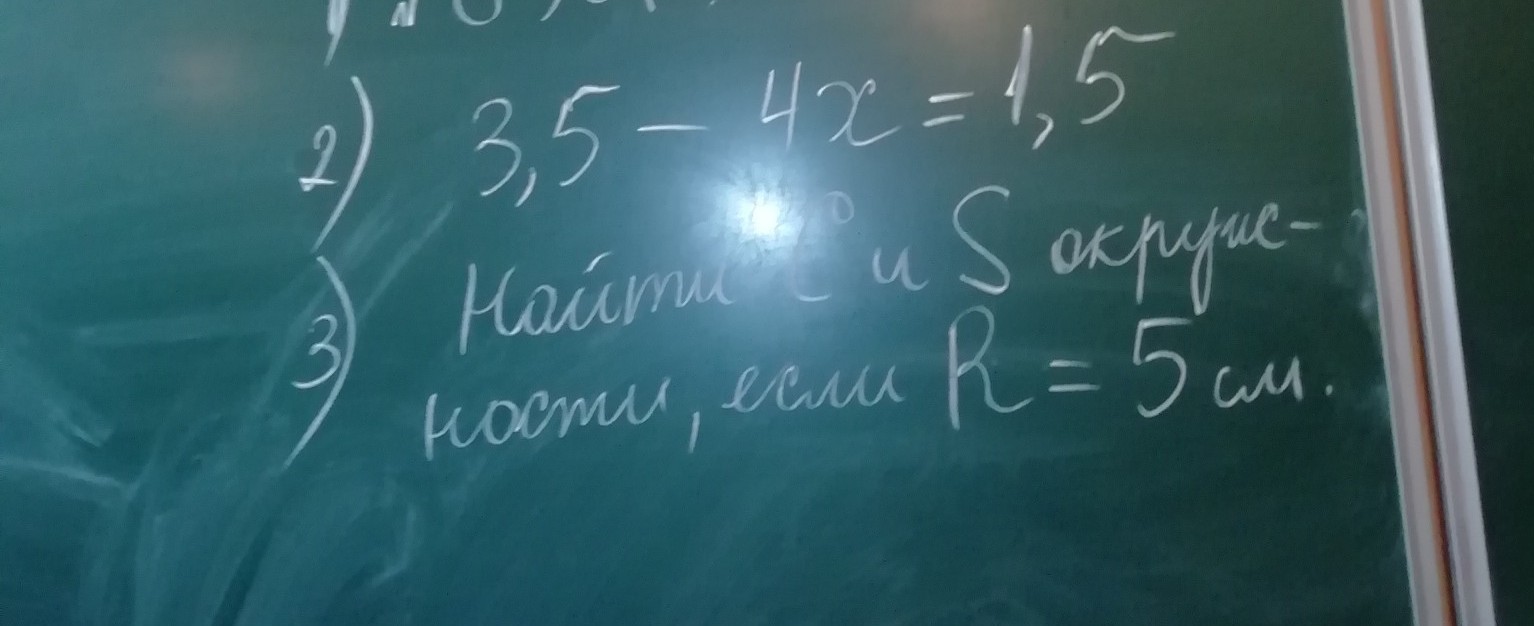 2) 3,5 - 4x = 1,5
3) Найти C и S окруж-
ности, если R = 5 см.